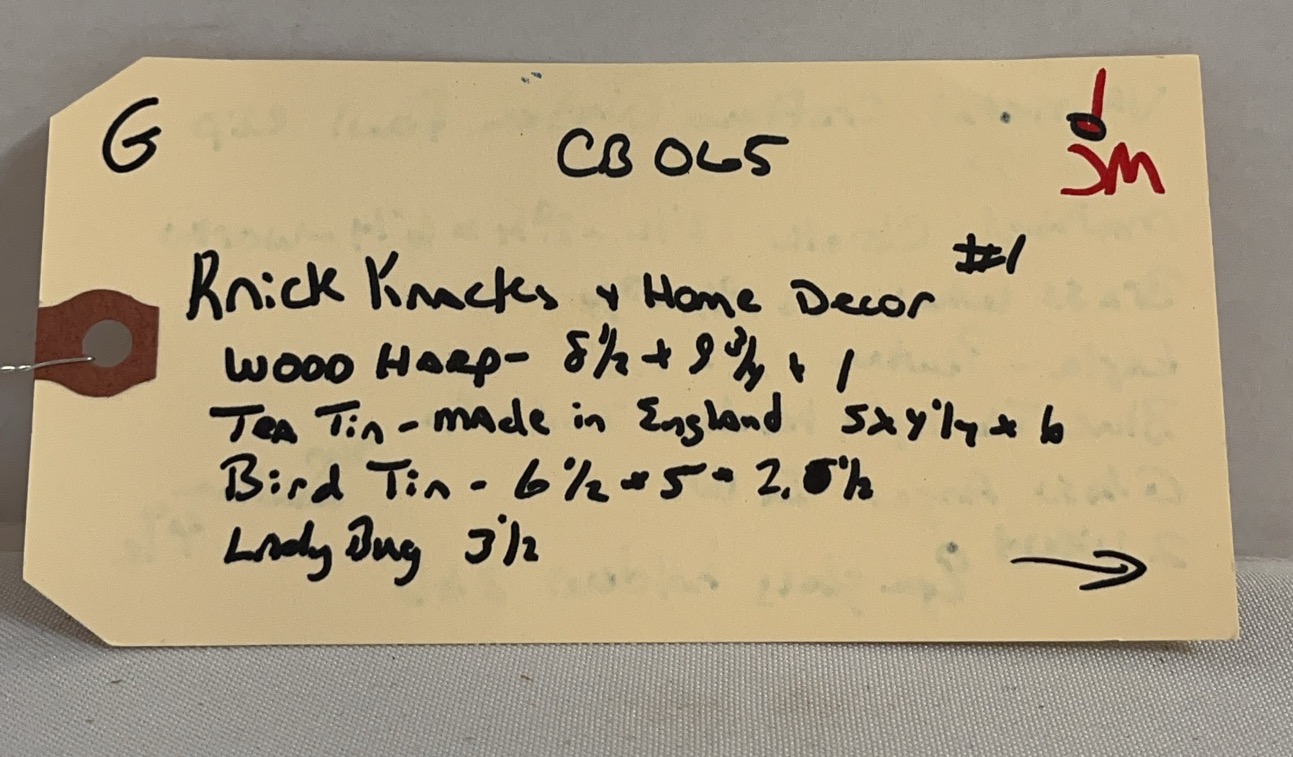 G
CB 065
JM
#1
Knick Knacks + Home Decor
Wood Harp - 8 1/2 x 9 3/4 x 1
Tea Tin - made in England 5 x 4 1/4 x 6
Bird Tin - 6 1/2 x 5 x 2. 1/2
Lady Bug 3 1/2
→